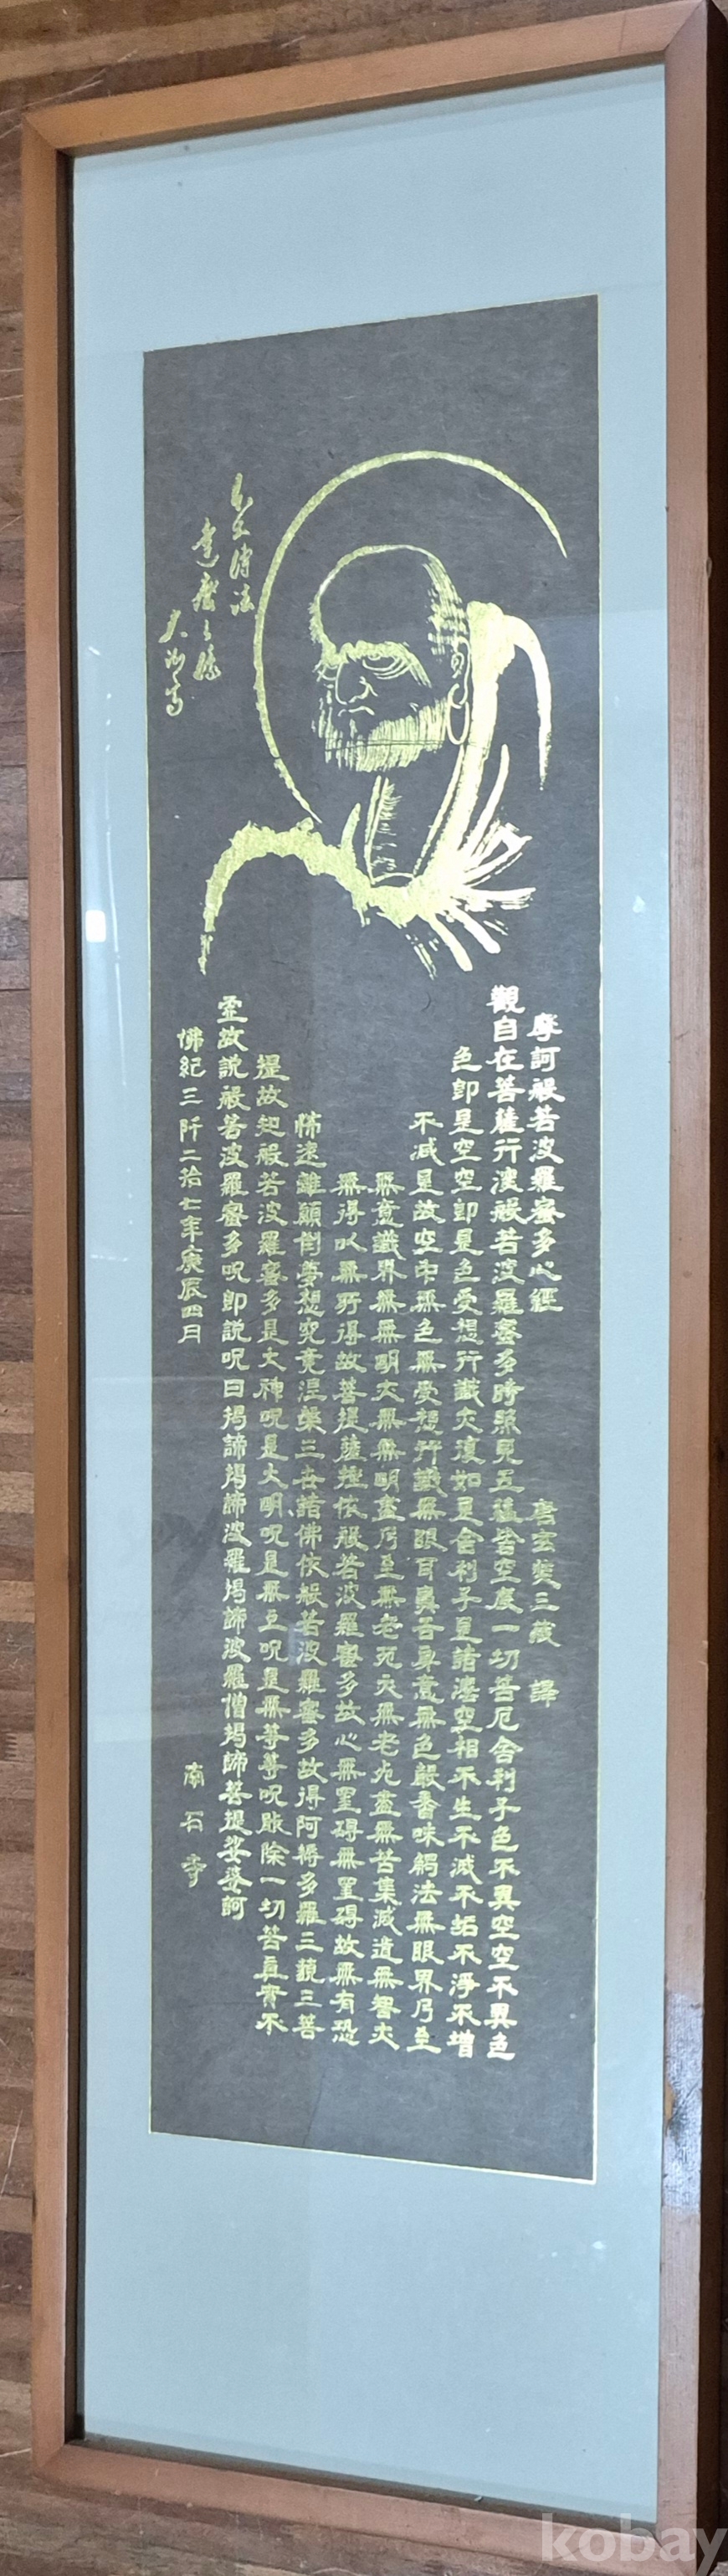 達磨之像
摩訶般若波羅蜜多心經 唐玄奘三藏 譯
觀自在菩薩行深般若波羅蜜多時照見五蘊皆空度一切苦厄舍利子色不異空空不異色
色即是空空即是色受想行識亦復如是舍利子是諸法空相不生不滅不垢不淨不增
不減是故空中無色無受想行識無眼耳鼻舌身意無色聲香味觸法無眼界乃至
無意識界無無明亦無無明盡乃至無老死亦無老死盡無苦集滅道無智亦
無得以無所得故菩提薩埵依般若波羅蜜多故心無罣碍無罣碍故無有恐
怖遠離顚倒夢想究竟涅槃三世諸佛依般若波羅蜜多故得阿耨多羅三藐三菩
提故知般若波羅蜜多是大神呪是大明呪是無上呪是無等等呪能除一切苦眞實不
虛故說般若波羅蜜多呪即說呪曰揭諦揭諦波羅揭諦波羅僧揭諦菩提娑婆訶
佛紀三阡二拾七年庚辰四月 南石寺
kobay